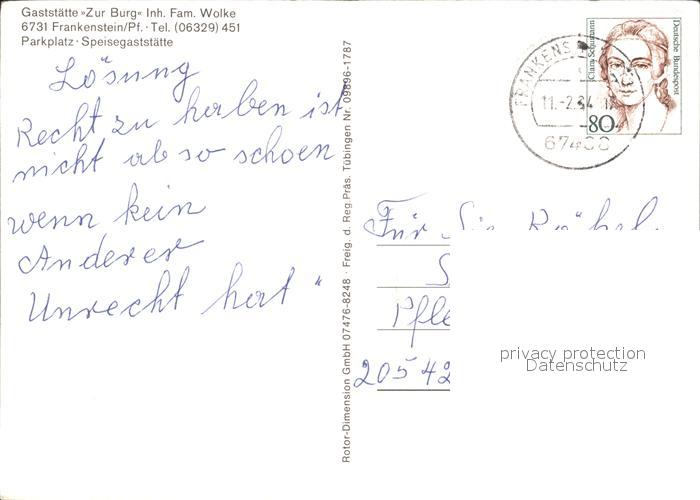 Gaststätte »Zur Burg« Inh. Fam. Wolke
6731 Frankenstein/Pf. · Tel. (06329) 451
Parkplatz · Speisegaststätte
Lösung
Recht zu haben ist
nicht ab so schoen
wenn kein
Anderer
Unrecht hat "
Rotor-Dimension GmbH 07476-8248 · Freig. d. Reg Präs. Tübingen Nr. 09896-1787
FRANKENS
11.-2.94
67468
Clara Schumann
Deutsche Bundespost
80
Für
Pfle
20542
privacy protection
Datenschutz